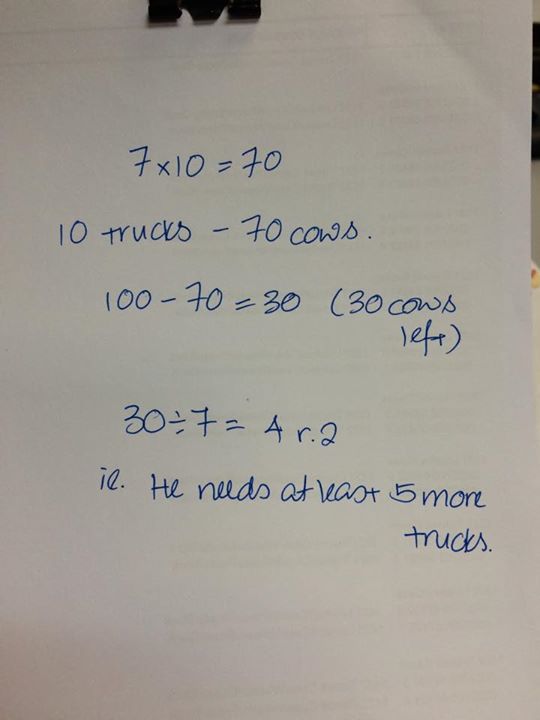 7×10 = 70
10 trucks - 70 cows.
100 - 70 = 30 (30 cows
left)
30÷7 = 4 r.2
ie. He needs at least 5 more
trucks.